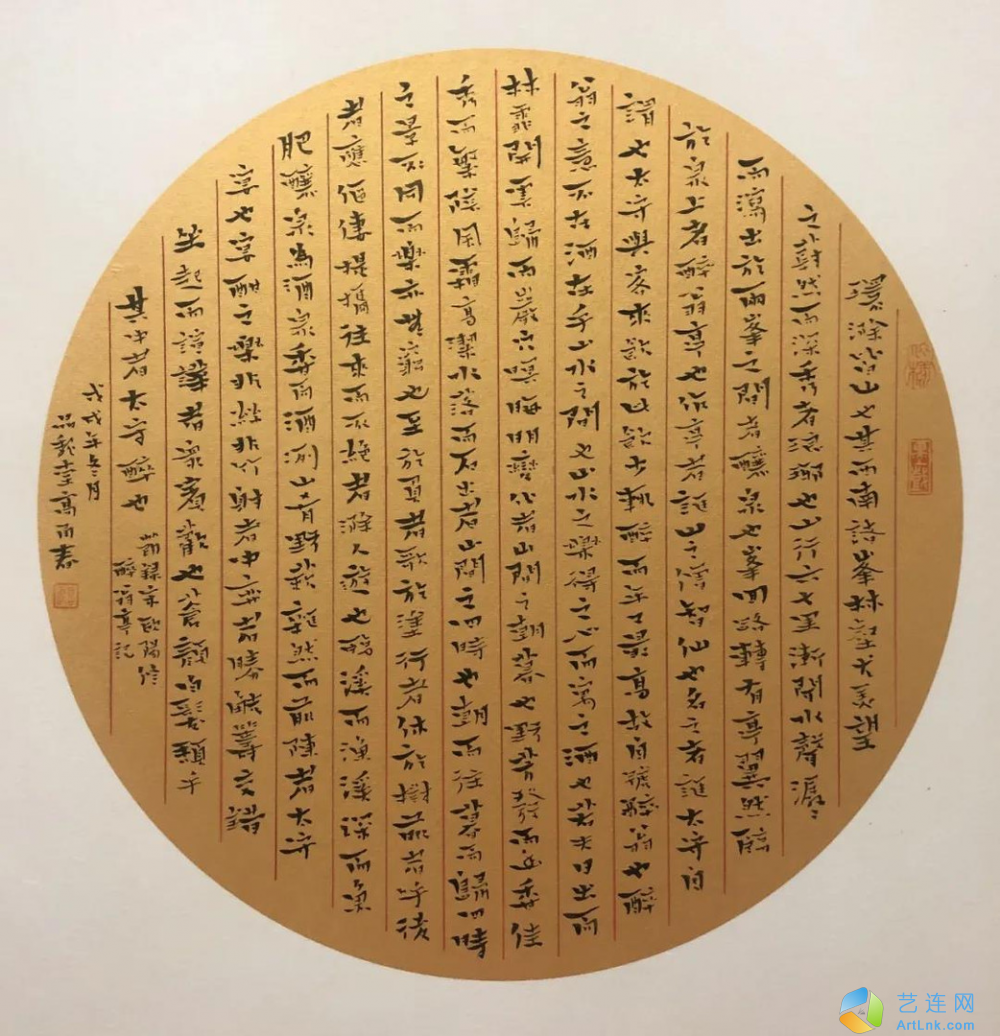 環滁皆山也其西南諸峯林壑尤美望
之蔚然而深秀者瑯琊也山行六七里漸聞水聲潺〻
而瀉出於兩峯之間者釀泉也峯回路轉有亭翼然臨
於泉上者醉翁亭也作亭者誰山之僧智仙也名之者誰太守自
謂也太守與客來飲於此飲少輒醉而年又最高故自號醉翁也醉
翁之意不在酒在乎山水之間也山水之樂得之心而寓之酒也若夫日出而
林霏開雲歸而巖穴暝晦明變化者山間之朝暮也野芳發而幽香佳
秀而繁陰風霜高潔水落而石出者山間之四時也朝而往暮而歸四時
之景不同而樂亦無窮也至於負者歌於塗行者休於樹前者呼後
者應傴僂提攜往來而不絶者滁人遊也臨溪而漁溪深而魚
肥釀泉為酒泉香而酒洌山肴野蔌雜然而前陳者太守
宴也宴酣之樂非絲非竹射者中弈者勝觥籌交錯
坐起而諠譁者衆賓歡也蒼顏白髮頹乎
其中者太守醉也
節錄宋歐陽修
醉翁亭記
戊戌年冬月
高雨春
艺连网
ArtLnk.com